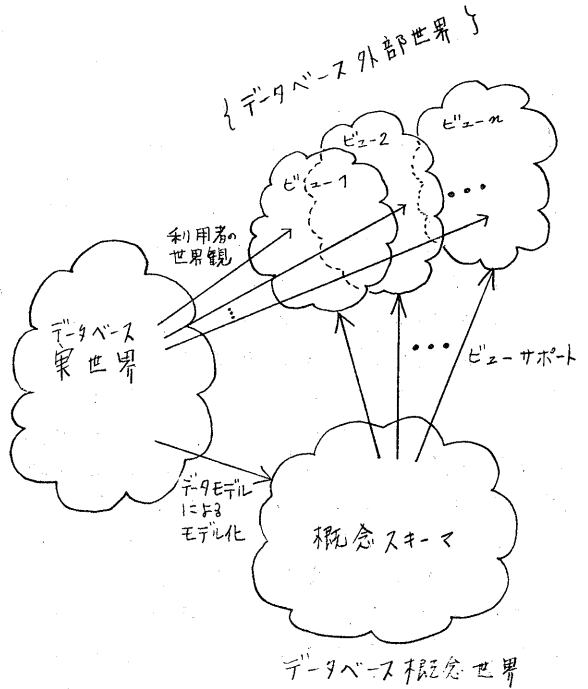 {データベース外部世界}
ビュー1
ビュー2
ビューn
利用者の
世界観
データベース
実世界
ビューサポート
データモデル
による
モデル化
概念スキーマ
データベース概念世界